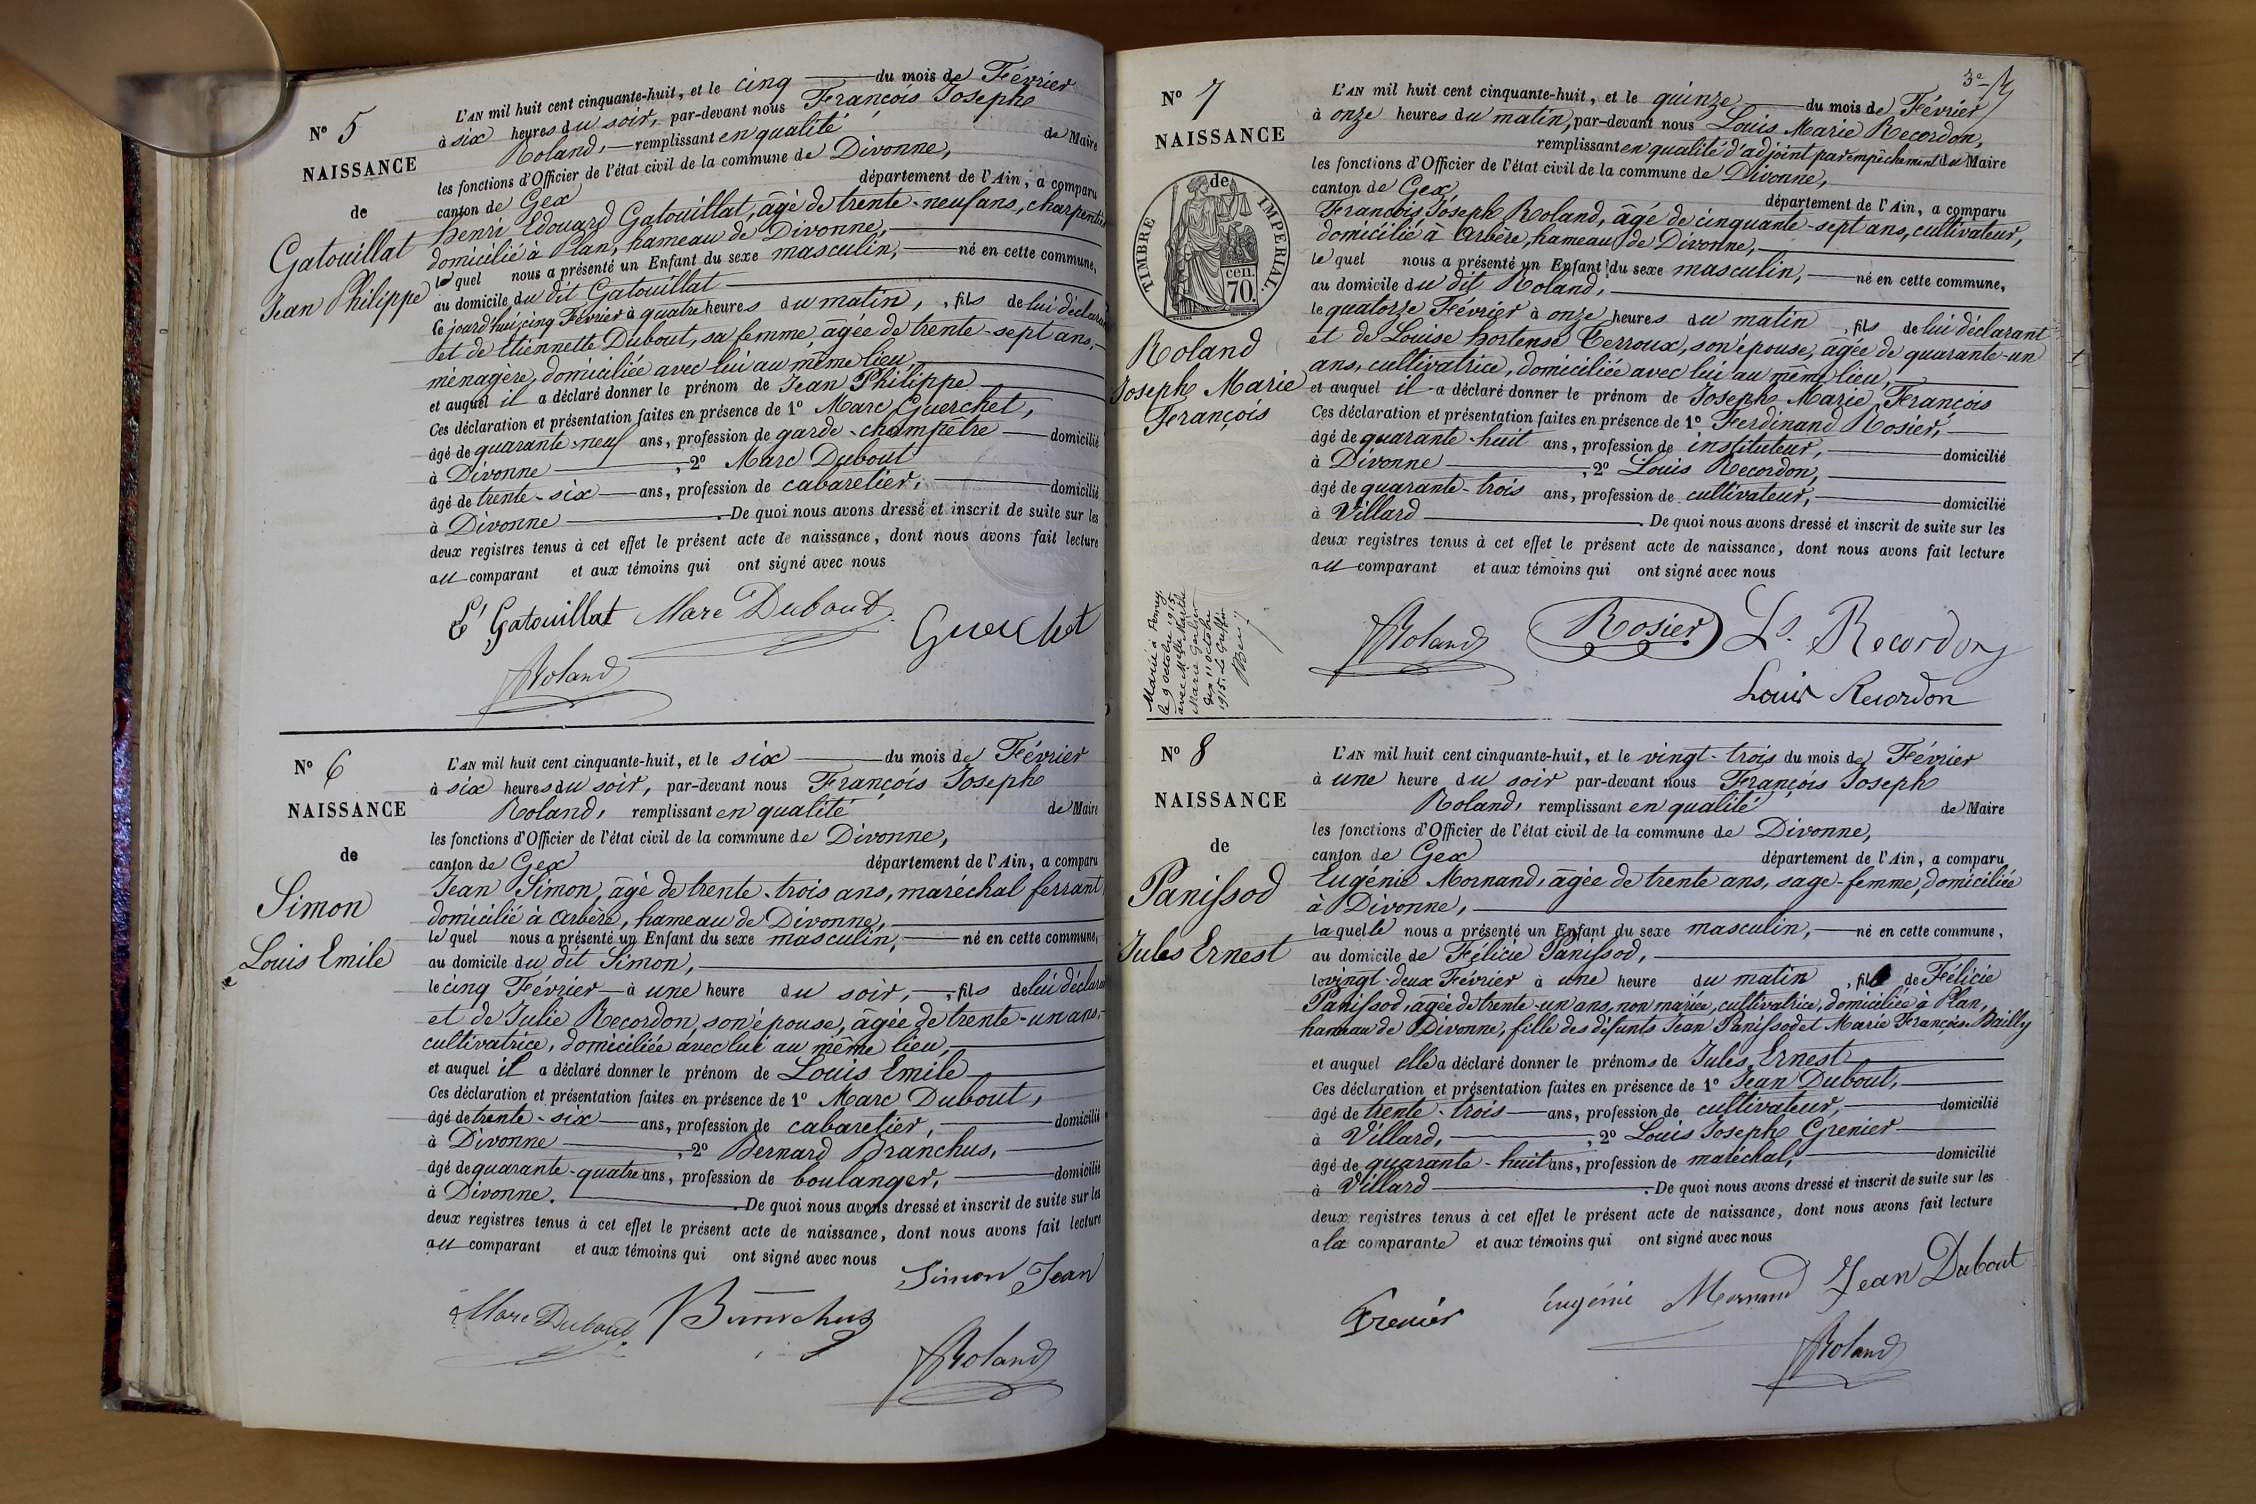 N° 5
NAISSANCE
de
Gatouillat
Jean Philippe
L'AN mil huit cent cinquante-huit, et le cinq du mois de Février
à six heures du soir, par-devant nous François Joseph
Roland, remplissant en qualité de Maire
les fonctions d'Officier de l'état civil de la commune de Divonne,
canton de Gex département de l'Ain, a comparu
henri Edouard Gatouillat, âgé de trente-neuf ans, charpentier
domicilié à Plan, hameau de Divonne,
lequel nous a présenté un Enfant du sexe masculin, né en cette commune,
au domicile du dit Gatouillat
le jourd'hui, cinq Février à quatre heures du matin, , fils de lui déclarant
et de Etiennette Dubout, sa femme, âgée de trente-sept ans,
ménagère, domiciliée avec lui au même lieu
et auquel il a déclaré donner le prénom de Jean Philippe
Ces déclaration et présentation faites en présence de 1° Marc Guerchet,
âgé de quarante-neuf ans, profession de garde-champêtre domicilié
à Divonne , 2° Marc Dubout
âgé de trente-six ans, profession de cabaretier, domicilié
à Divonne . De quoi nous avons dressé et inscrit de suite sur les
deux registres tenus à cet effet le présent acte de naissance, dont nous avons fait lecture
au comparant et aux témoins qui ont signé avec nous
Gatouillat Marc Dubout Guerchet
Roland
N° 6
NAISSANCE
de
Simon
Louis Emile
L'AN mil huit cent cinquante-huit, et le six du mois de Février
à six heures du soir, par-devant nous François Joseph
Roland, remplissant en qualité de Maire
les fonctions d'Officier de l'état civil de la commune de Divonne,
canton de Gex département de l'Ain, a comparu
Jean Simon, âgé de trente-trois ans, maréchal ferrant
domicilié à Arbère, hameau de Divonne,
lequel nous a présenté un Enfant du sexe masculin, né en cette commune,
au domicile du dit Simon,
le cinq Février à une heure du soir, , fils de lui déclarant
et de Julie Recordon, son épouse, âgée de trente-un ans,
cultivatrice, domiciliée avec lui au même lieu,
et auquel il a déclaré donner le prénom de Louis Emile
Ces déclaration et présentation faites en présence de 1° Marc Dubout,
âgé de trente-six ans, profession de cabaretier, domicilié
à Divonne , 2° Bernard Branchus,
âgé de quarante-quatre ans, profession de boulanger, domicilié
à Divonne. . De quoi nous avons dressé et inscrit de suite sur les
deux registres tenus à cet effet le présent acte de naissance, dont nous avons fait lecture
au comparant et aux témoins qui ont signé avec nous
Simon Jean
Marc Dubout Branchus
Roland
3e
N° 7
NAISSANCE
de
TIMBRE IMPERIAL.
cen.
70.
Roland
Joseph Marie
François
L'AN mil huit cent cinquante-huit, et le quinze du mois de Février
à onze heures du matin, par-devant nous Louis Marie Recordon,
remplissant en qualité d'adjoint par empêchement du Maire
les fonctions d'Officier de l'état civil de la commune de Divonne,
canton de Gex, département de l'Ain, a comparu
François Joseph Roland, âgé de cinquante-sept ans, cultivateur,
domicilié à Arbère, hameau de Divonne,
lequel nous a présenté un Enfant du sexe masculin, né en cette commune,
au domicile du dit Roland,
le quatorze Février à onze heures du matin , fils de lui déclarant
et de Louise hortense Terroux, son épouse, âgée de quarante-un
ans, cultivatrice, domiciliée avec lui au même lieu,
et auquel il a déclaré donner le prénom de Joseph Marie François
Ces déclaration et présentation faites en présence de 1° Ferdinand Rosier,
âgé de quarante-huit ans, profession de instituteur, domicilié
à Divonne , 2° Louis Recordon,
âgé de quarante-trois ans, profession de cultivateur, domicilié
à Villard . De quoi nous avons dressé et inscrit de suite sur les
deux registres tenus à cet effet le présent acte de naissance, dont nous avons fait lecture
au comparant et aux témoins qui ont signé avec nous
Marié à
le 9 octobre 1915,
avec Melle Marthe
Marie
11 octobre
1915. Le Greffier
Roland Rosier Ls. Recordon
Louis Recordon
N° 8
NAISSANCE
de
Panissod
Jules Ernest
L'AN mil huit cent cinquante-huit, et le vingt-trois du mois de Février
à une heure du soir par-devant nous François Joseph
Roland, remplissant en qualité de Maire
les fonctions d'Officier de l'état civil de la commune de Divonne,
canton de Gex département de l'Ain, a comparu
Eugénie Mornand, âgée de trente ans, sage-femme, domiciliée
à Divonne,
laquelle nous a présenté un Enfant du sexe masculin, né en cette commune,
au domicile de Félicie Panissod,
le vingt-deux Février à une heure du matin , fils de Félicie
Panissod, âgée de trente-un ans, non mariée, cultivatrice, domiciliée à Plan,
hameau de Divonne, fille des défunts Jean Panissod et Marie Françoise Bailly
et auquel elle a déclaré donner le prénoms de Jules Ernest
Ces déclaration et présentation faites en présence de 1° Jean Dubout,
âgé de trente-trois ans, profession de cultivateur, domicilié
à Villard, , 2° Louis Joseph Grenier
âgé de quarante-huit ans, profession de maréchal, domicilié
à Villard . De quoi nous avons dressé et inscrit de suite sur les
deux registres tenus à cet effet le présent acte de naissance, dont nous avons fait lecture
a la comparante et aux témoins qui ont signé avec nous
Grenier Eugénie Mornand Jean Dubout
Roland